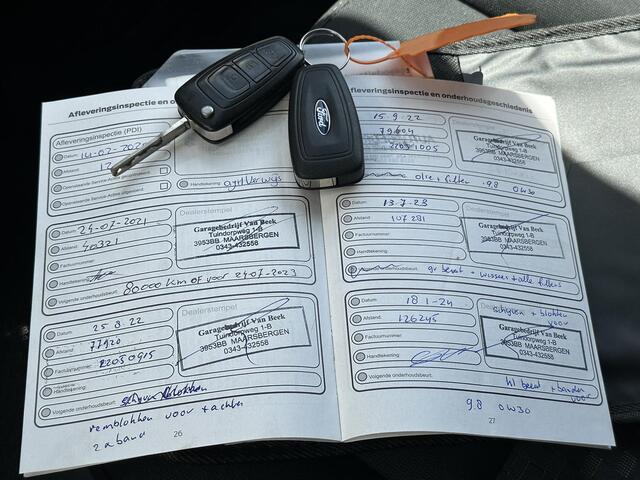 Afleveringsinspectie en o
Afleveringsinspectie (PDI)
Datum: 14-02-202
Afstand: 12
Openstaande Service-Acties
Openstaande Service-Acties
Handtekening:
Datum: 24-07-2021
Afstand: 40321
Factuur
Handtekening:
Volgende onderhoudsbeurt: 80000 km of voor 24-07-2023
Dealerstempel
Garagebedrijf Van Beek
Tuindorpweg 1-B
3953BB MAARSBERGEN
0343-432558
Datum: 25-8-22
Afstand: 77920
Factuurnummer: 22050915
Handtekening:
Volgende onderhoudsbeurt:
remblokken voor + achter
2 aband
Dealerstempel
Garagebedrijf Van Beek
Tuindorpweg 1-B
3953BB MAARSBERGEN
0343-432558
26
Ford
Afleveringsinspectie en onderhoudsgeschiedenis
15-9-22
79604
22051005
olie + filter 9.8 0W30
Garagebedrijf Van Beek
Tuindorpweg 1-B
3953BB MAARSBERGEN
0343-432558
Datum: 13-7-23
Afstand: 107281
Factuurnummer:
Handtekening:
gr beurt + wissers + alle filters
Dealerstempel
Garagebedrijf Van Beek
Tuindorpweg 1-B
3953BB MAARSBERGEN
0343-432558
Datum: 18-1-24
Afstand: 126245
Factuurnummer:
Handtekening:
Volgende onderhoudsbeurt: kl beurt + banden voor
schijven + blokken voor
Garagebedrijf Van Beek
Tuindorpweg 1-B
3953BB MAARSBERGEN
0343-432558
9.8 0W30
27